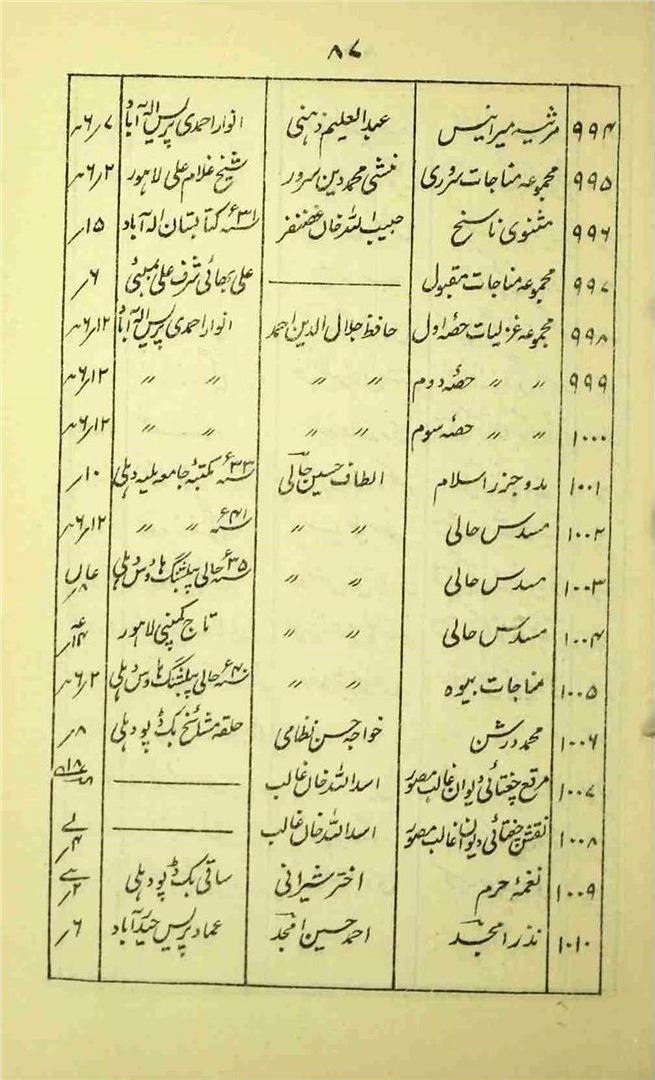 ۸۷
۹۹۴ مرثیہ میر انیس عبدالعلیم ذہنی انوار احمدی پریس الہ آباد ۷ر۶
۹۹۵ مجموعہ مناجات سروری منشی محمد دین سرور شیخ غلام علی لاہور ۲ر۶
۹۹۶ مثنوی ناسخ حبیب اللہ خاں غضنفر ۳۱ء کتابستان الہ آباد ۱۵ر
۹۹۷ مجموعہ مناجات مقبول ——— علی بھائی شرف علی بمبئی ۶ر
۹۹۸ مجموعہ غزلیات حصہ اول حافظ جلال الدین احمد انوار احمدی پریس الہ آباد ۱۲ر۶
۹۹۹ 〃 〃 حصۂ دوم 〃 〃 〃 〃 ۱۲ر۶
۱۰۰۰ 〃 〃 حصۂ سوم 〃 〃 〃 〃 ۱۲ر۶
۱۰۰۱ مدوجزر اسلام الطاف حسین حالی ۳۳ء مکتبۂ جامعہ ملیہ دہلی ۱۰ر
۱۰۰۲ مسدس حالی 〃 〃 ۴۱ء 〃 〃 ۱۲ر۶
۱۰۰۳ مسدس حالی 〃 〃 ۳۵ء حالی پبلشنگ ہاؤس دہلی
۱۰۰۴ مسدس حالی 〃 〃 تاج کمپنی لاہور
۱۰۰۵ مناجات بیوہ 〃 〃 ۴۰ء حالی پبلشنگ ہاؤس دہلی ۲ر۶
۱۰۰۶ محمد درشن خواجہ حسن نظامی حلقہ مشائخ بک ڈپو دہلی ۸ر
۱۰۰۷ مرقع چغتائی دیوان غالب مصور اسد اللہ خاں غالب ———
۱۰۰۸ نقش چغتائی دیوان غالب مصور اسد اللہ خاں غالب ———
۱۰۰۹ نغمۂ حرم اختر شیرانی ساقی بک ڈپو دہلی
۱۰۱۰ نذر امجد احمد حسین امجد عماد پریس حیدرآباد ۶ر